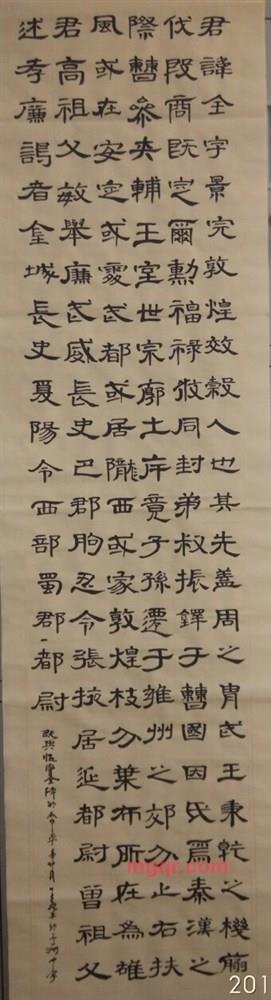 君諱全字景完敦煌效穀人也其先蓋周之胄武王秉乾之機翦
伐殷商既定爾勳福祿攸同封弟叔振鐸于曹國因氏焉秦漢之
際曹參夾輔王室世宗廓土斥竟子孫遷于雍州之郊分止右扶
風或在安定或處武都或居隴西或家敦煌枝分葉布所在為雄
君高祖父敏舉廉武威長史巴郡朐忍令張掖居延都尉曾祖父
述孝廉謁者金城長史夏陽令西部蜀郡都尉
mgqr.com
201